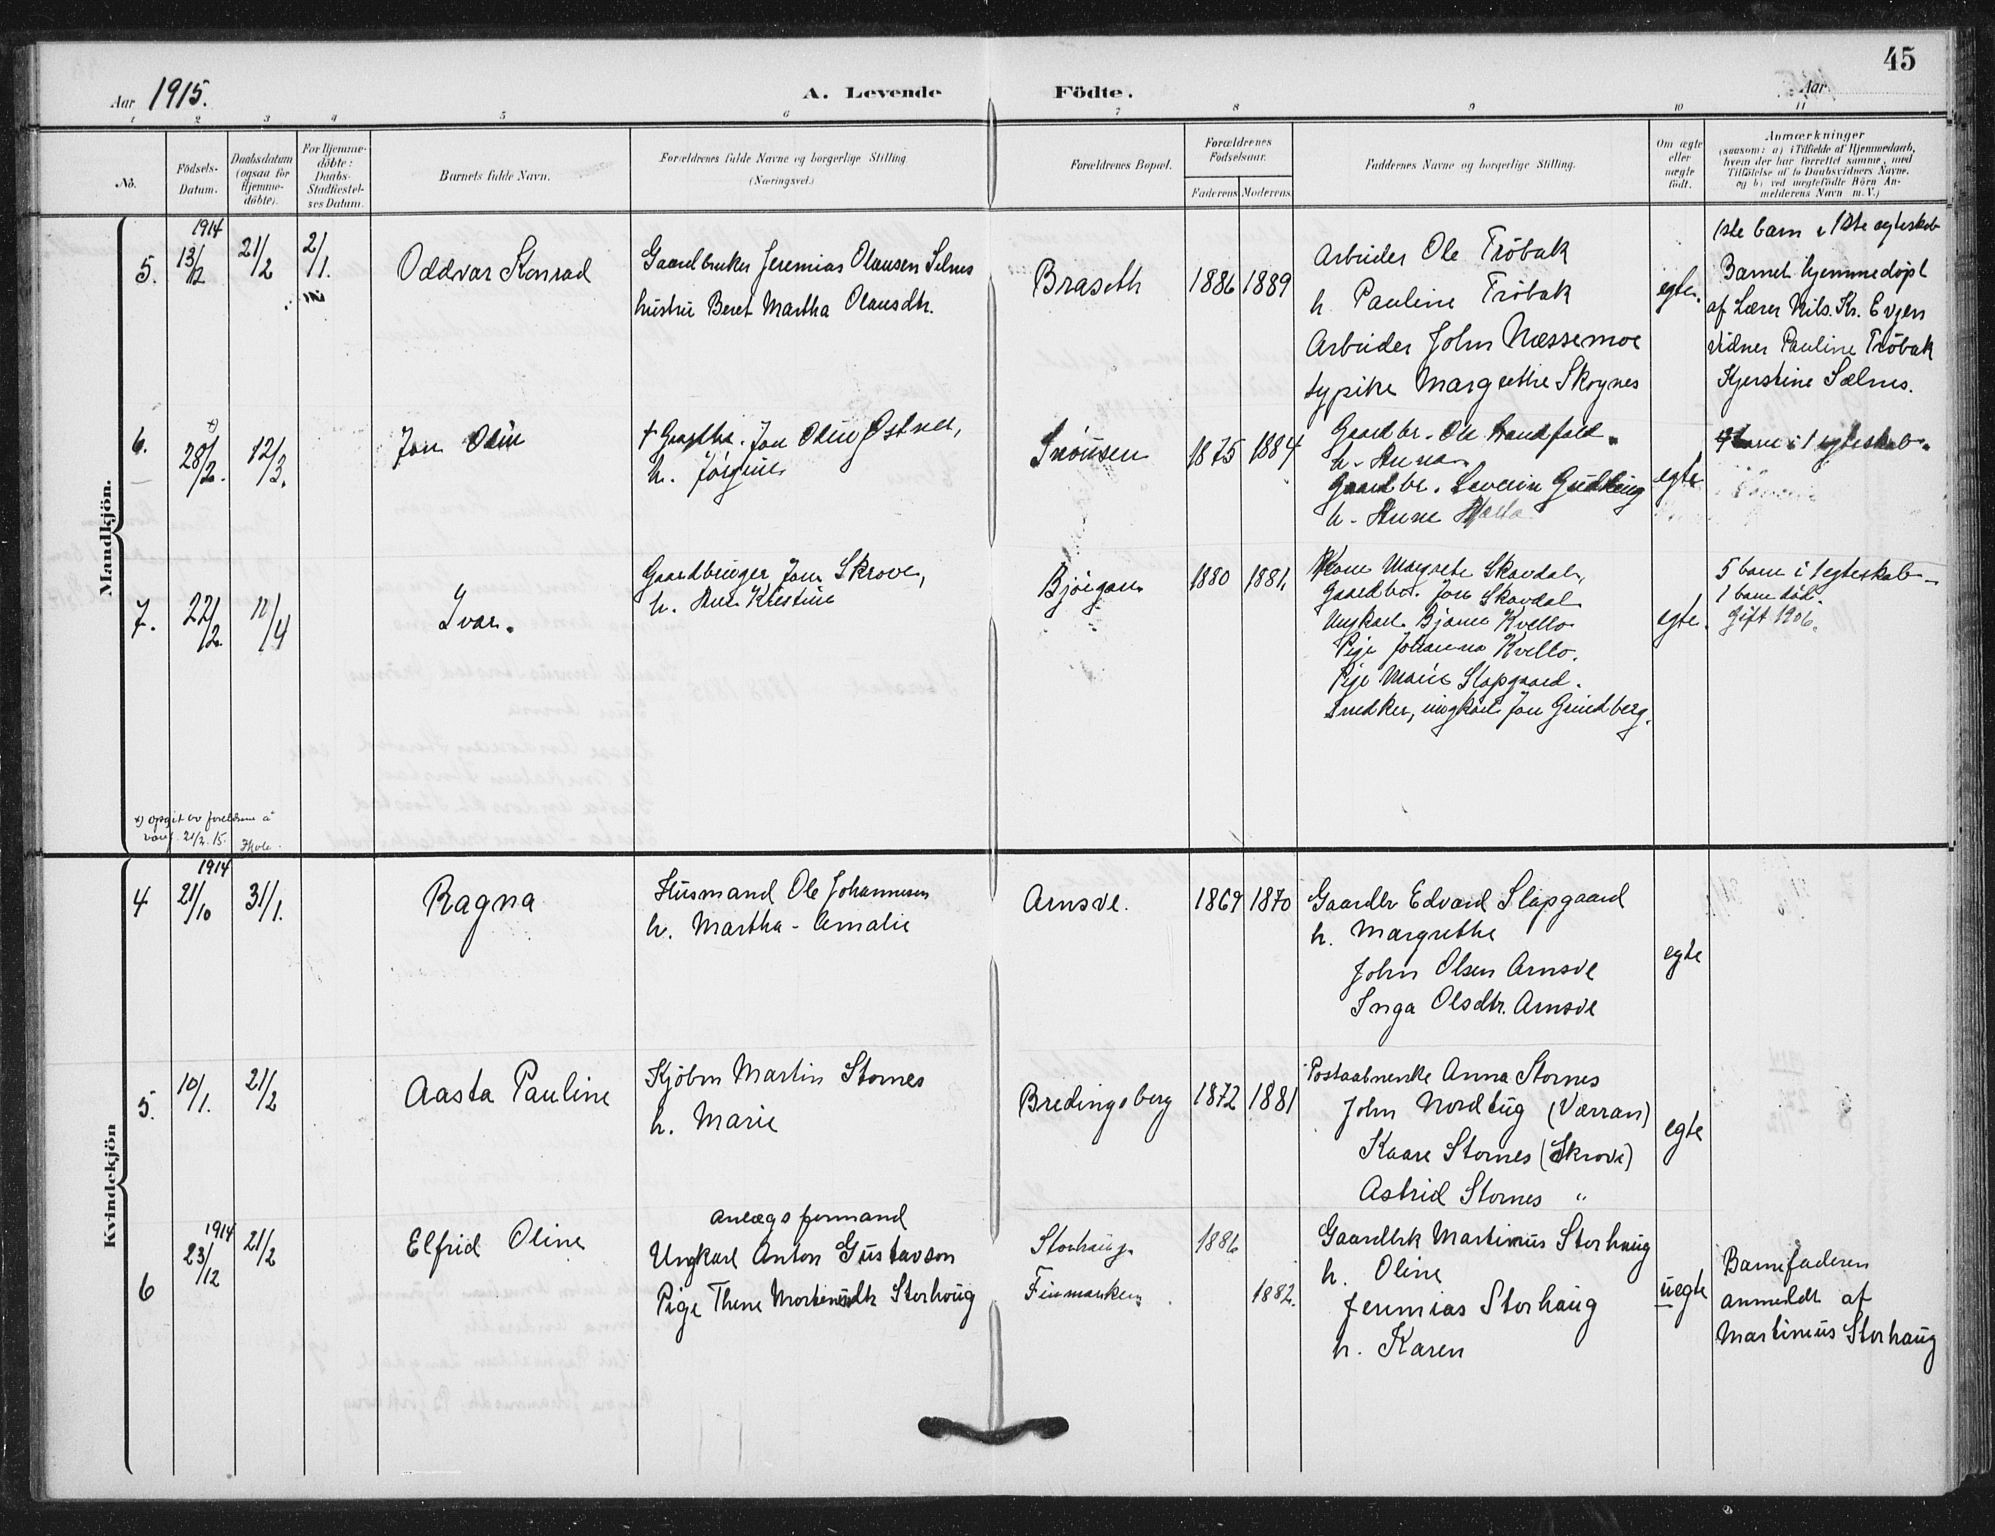 45
Aar 1915.
A. Levende Födte.
Aar
1 2 3 4 5 6 7 8 9 10 11
No.
Födsels-
Datum.
Daabsdatum
(ogsaa for
Hjemme-
döbte).
For Hjemme-
döbte:
Daabs-
Stadfæstel-
ses Datum.
Barnets fulde Navn.
Forældrenes fulde Navne og borgerlige Stilling
(Næringsvei.)
Forældrenes Bopæl.
Forældrenes
Födselsaar.
Faderens Moderens
Faddernes Navne og borgerlige Stilling.
Om ægte
eller
uægte
födt.
Anmærkninger
(saasom: a) i Tilfælde af Hjemmedaab,
hvem der har forrettet samme, med
Tilföielse af to Daabsvidners Navne,
og b) ved uægtefödte Börn An-
melderens Navn m. V.)
Mandkjön.
5.
1914
13/12
21/2
2/1.
Oddvar Konrad
Gaardbruker Jeremias Olausen Selnes
hustru Beret Martha Olausdtr.
Braseth
1886 1889
Arbeider Ole Tröbak
h. Pauline Tröbak
Arbeider John Næssemoe
sypike Margrethe Skognes
egte.
1ste barn i 1ste egteskab
Barnet hjemmedøpt
af Lærer Nils. Kr. Evjen
vidner Pauline Tröbak
Kjerstine Sælnes.
6.
x)
28/2.
12/3.
Jon Odin
+ Gaardbr. Jon Odin Østnes,
h. Jørgine
1875 1884
Gaardbr. Ole
h. Anna
Gaardbr. Severin
h. Anne
egte
barn i 1 egteskab.
7.
22/2.
11/4
Ivar.
Gaardbruger Jon Skrove,
h. Anne Kristine
Bjørgan
1880 1881
Kone Margrete Skavdal,
Gaardbr. Jon Skavdal
Ungkarl Bjarne Kvello
Pige Johanna Kvello.
Pige Marie Slapgaard.
Snedker, ungkarl Jon Grindberg.
egte.
5 barn i 1 egteskab
1 barn død.
Gift 1906.
x) opgit av forældrene å
være 21/2.15.
Kvindekjön
4
1914
21/10
31/1.
Ragna
Husmand Ole Johannesen
h. Martha - Amalie
Arnsve.
1869 1870
Gaardbr Edvard Slapgaard
h. Margrethe
John Olsen Arnsve
Inga Olsdtr. Arnsve
egte
5.
10/1.
21/2
Aasta Pauline
Kjöbm Martin Stornes
h. Marie
Bredingsberg
1872 1881
Postaabnerske Anna Stornes
John Nordtug (Værran)
Kaare Stornes (Skrove)
Astrid Stornes "
egte
6
1914
23/12
21/2
Elfrid Oline
anlægsformand
Ungkarl Anton Gustavson
Pige Thene Martinusdtr Storhaug
Storhaug
Finmarken
1886
1882.
Gaardbrk Martinus Storhaug
h. Oline
Jeremias Storhaug
h. Karen
uegte
Barnefaderen
anmeldt af
Martinius Storhaug